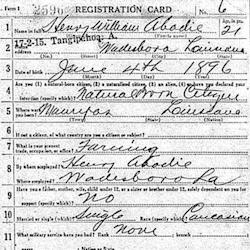 Form 1 2596 REGISTRATION CARD No. 6
1 Name in full Henry William Abadie 21
17-2-15. Tangipahoa A.
2 Wadesboro Louisiana
3 Date of birth June 4th 1896
(Month) (Day) (Year)
4 Are you (1) a natural-born citizen, (2) a naturalized citizen, (3) an alien, (4) or have you declared your
intention (specify which)? Natural Born Citizen
5 Where were you born?
6 If not a citizen, of what country are you a citizen or subject?
7 What is your present trade, occupation, or office? Farming
8 By whom employed? Henry Abadie
Where employed? Wadesboro La
9 Have you a father, mother, wife, child under 12, or a sister or brother under 12, solely dependent on you for
support (specify which)? No
10 Married or single (which)? Single Race (specify which)? Caucasian
11 What military service have you had? Rank None